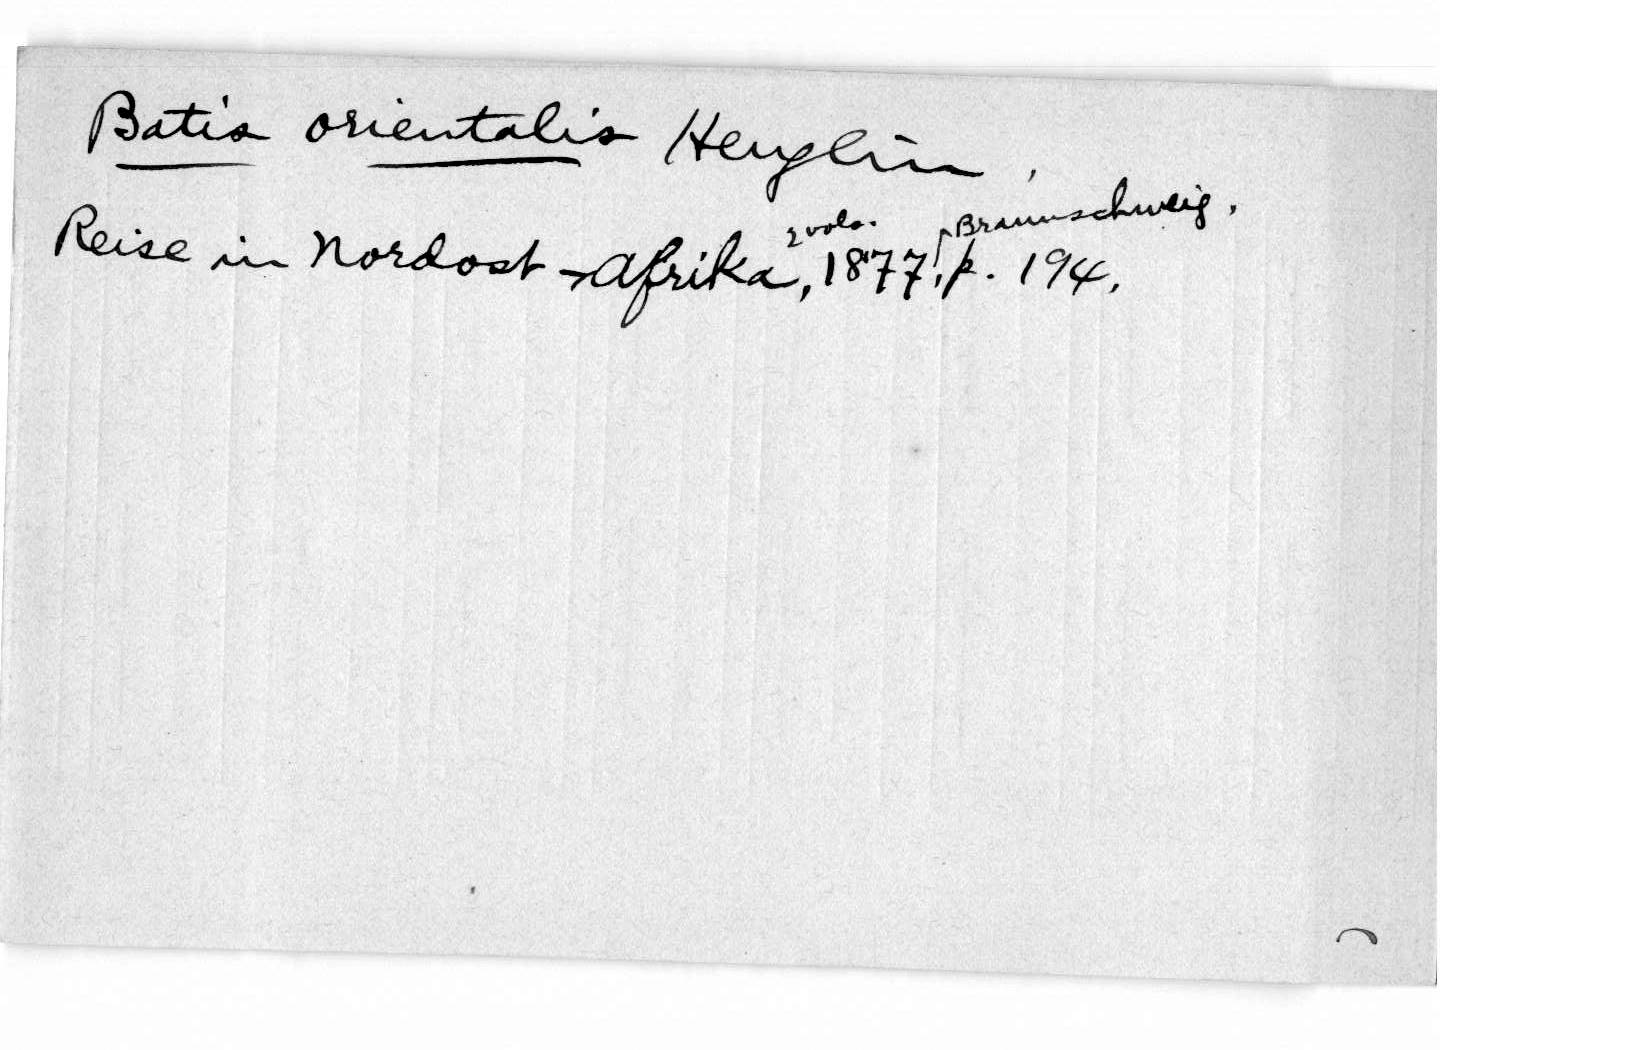 Batis orientalis Heuglin,
Reise in Nordost-Afrika, 2 vols. 1877, Braunschweig, p. 194.